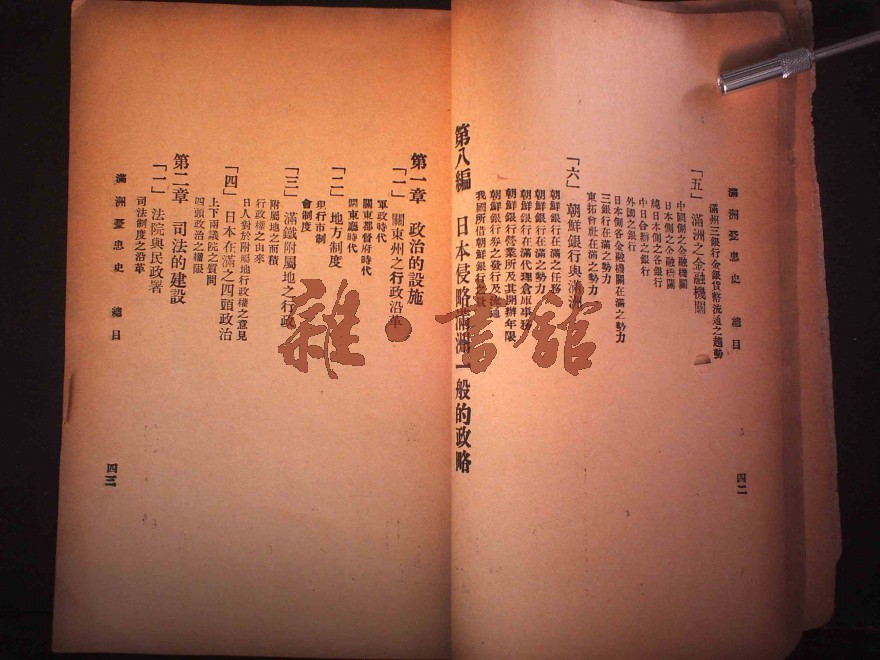 滿洲憂患史 總目
四二
滿洲三銀行金銀貨幣流通之趨勢
「五」 滿洲之金融機關
中國側之金融機關
日本側之金融機關
純日本側之各銀行
中日合辦之銀行
外國之銀行
日本側各金融機關在滿之勢力
三銀行在滿之勢力
東拓會社在滿之勢力
「六」 朝鮮銀行與滿洲
朝鮮銀行在滿之任務
朝鮮銀行在滿之勢力
朝鮮銀行在滿代理倉庫事務
朝鮮銀行營業所及其開辦年限
朝鮮銀行券之發行及流通
我國所借朝鮮銀行之款
第八編 日本侵略滿洲一般的政略
第一章 政治的設施
「一」 關東州之行政沿革
軍政時代
關東都督府時代
關東廳時代
「二」 地方制度
現行市制
會制度
「三」 滿鐵附屬地之行政
附屬地之面積
行政權之由來
日人對於附屬地行政權之意見
「四」 日本在滿之四頭政治
上下兩議院之質問
四頭政治之權限
第二章 司法的建設
「一」 法院與民政署
司法制度之沿革
滿洲憂患史 總目
四三
雜·書館